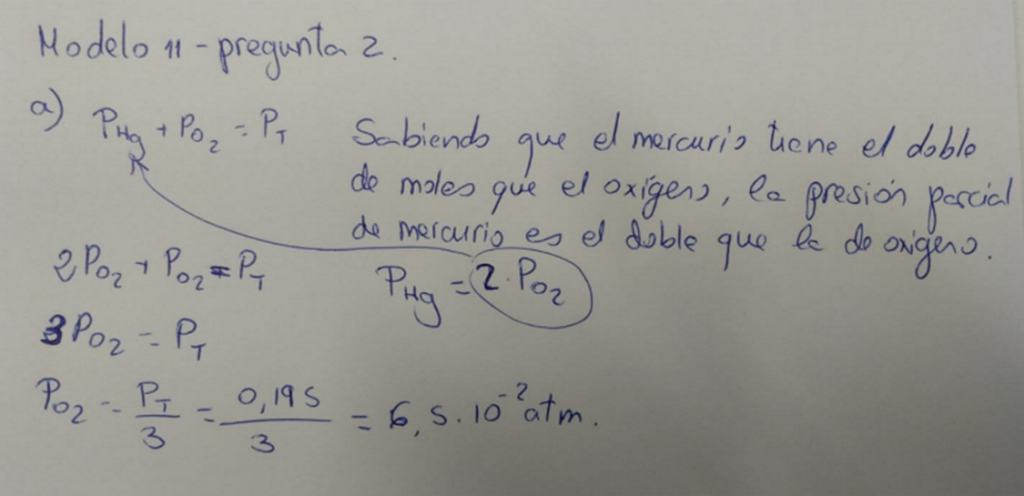 Modelo 11 - pregunta 2.
a) P_Hg + P_O₂ = P_T
Sabiendo que el mercurio tiene el doble
de moles que el oxígeno, la presión parcial
de mercurio es el doble que la de oxigeno.
P_Hg = 2·P_O₂
2P_O₂ + P_O₂ = P_T
3P_O₂ = P_T
P_O₂ = P_T/3 = 0,195/3 = 6,5·10⁻² atm.